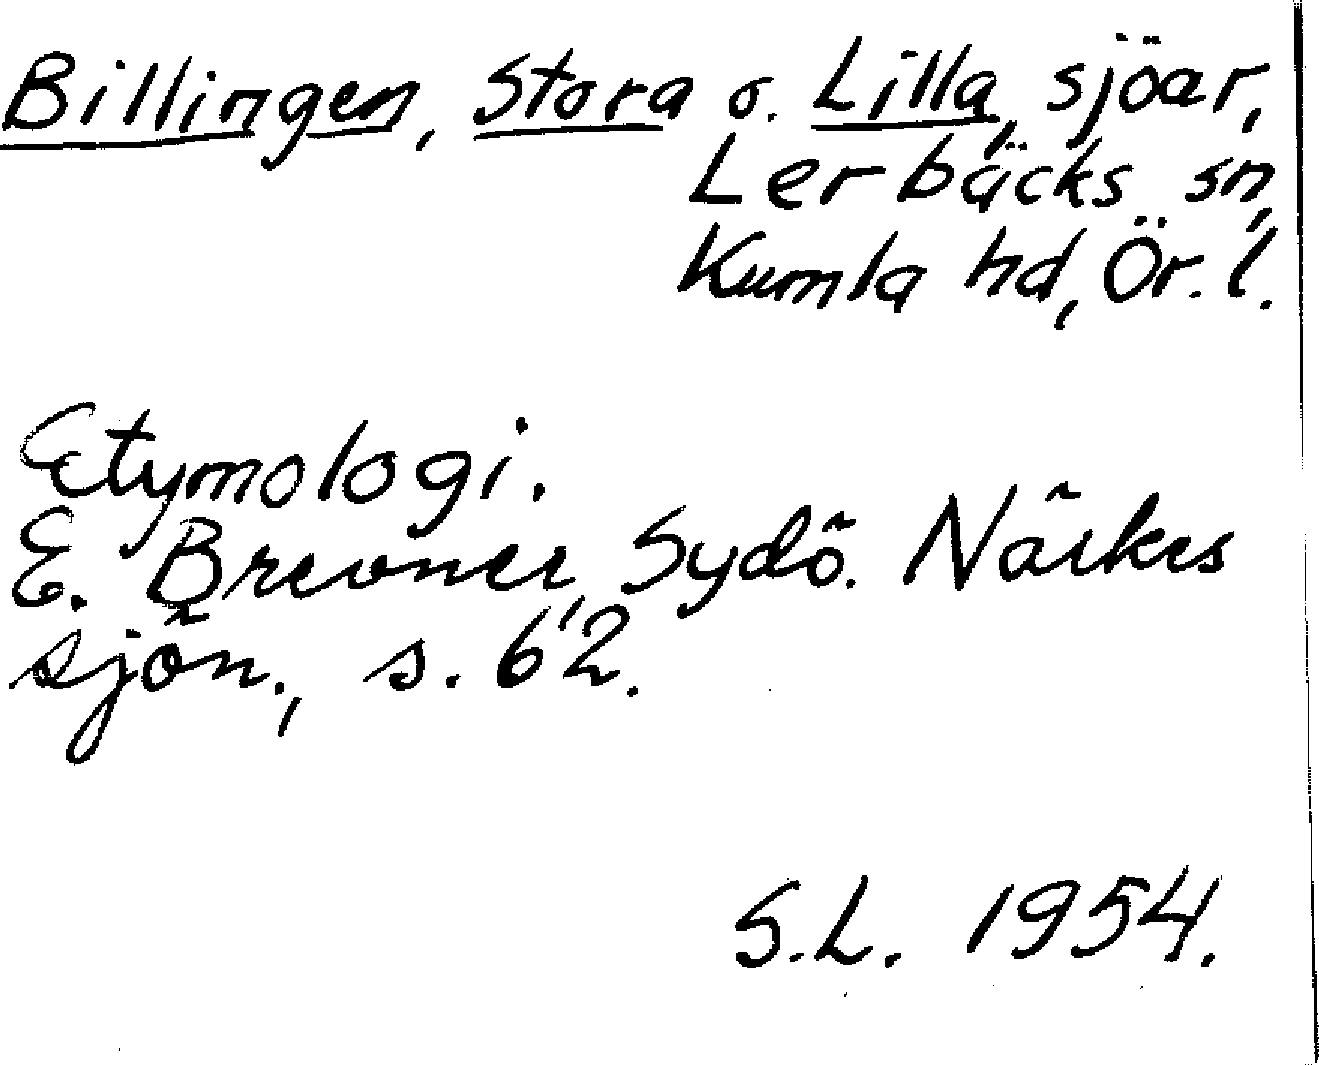 Billingen, Stora o. Lilla, sjöar,
Lerbäcks sn,
Kumla hd, Ör. l.
Etymologi.
E. Brevner, Sydö. Närkes
sjön., s. 62.
S.L. 1954.